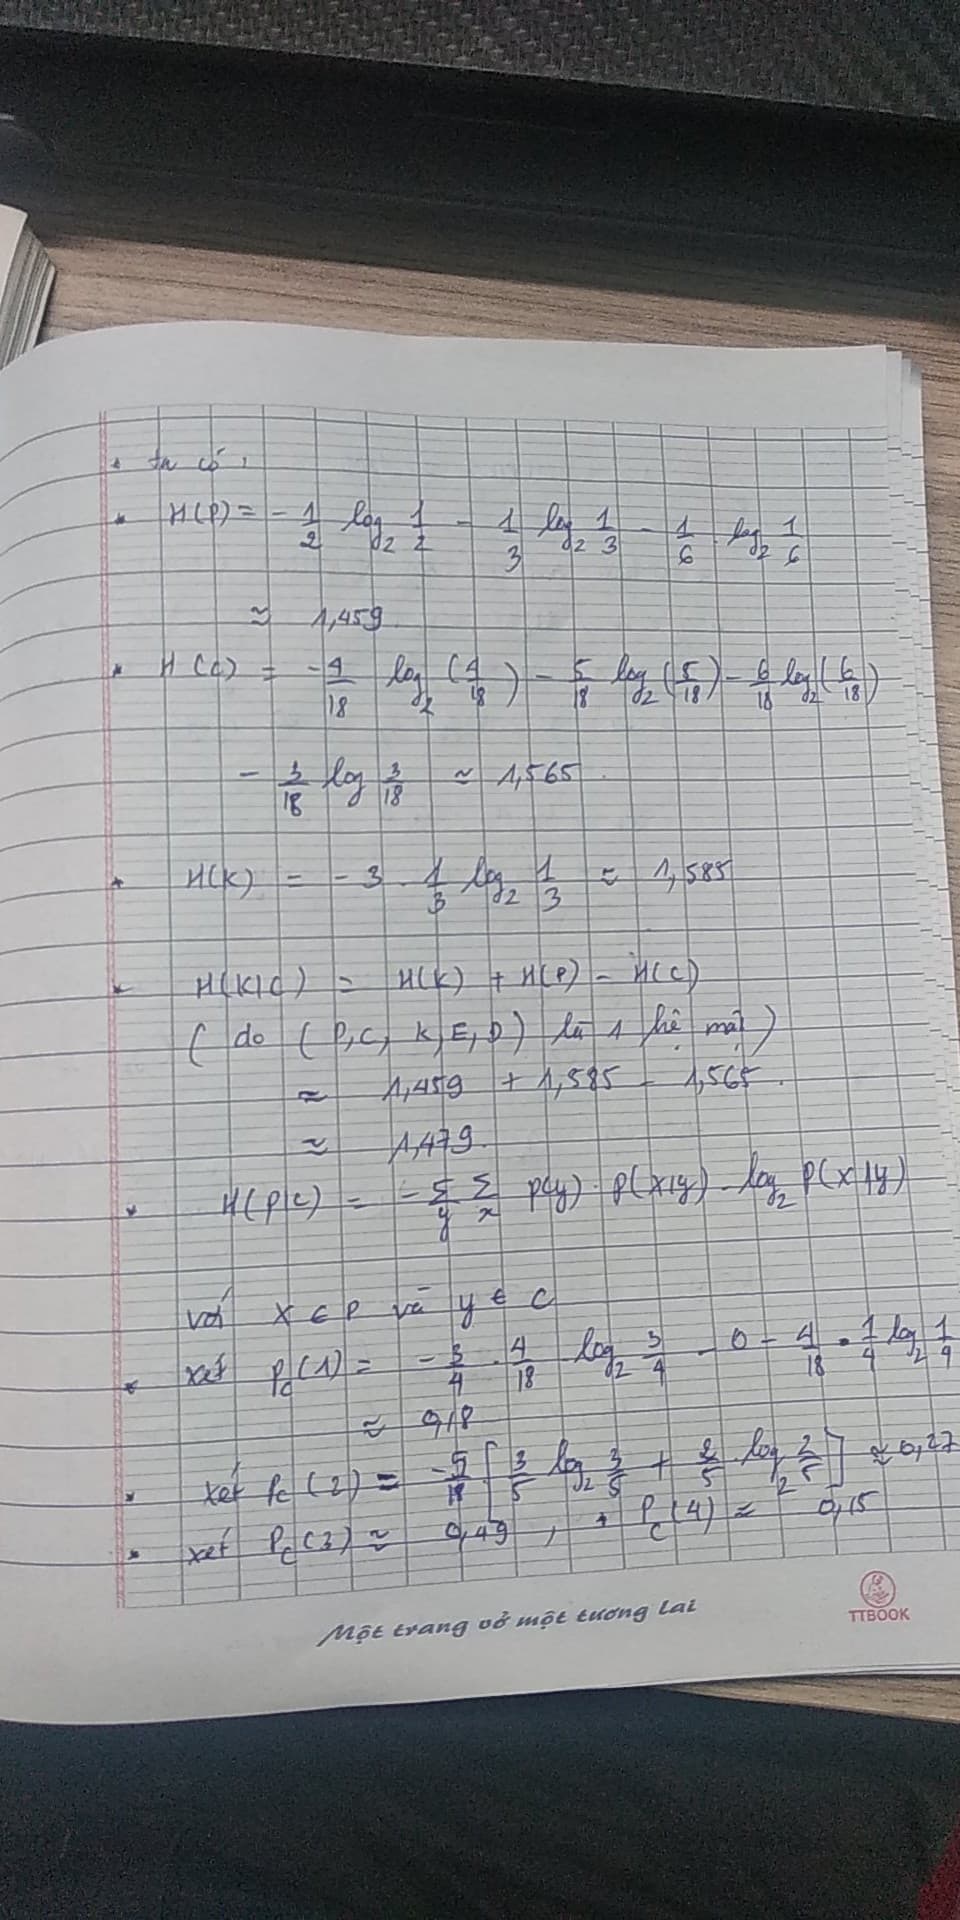 ta có:
H(P) = - 1/2 log₂ 1/2 - 1/3 log₂ 1/3 - 1/6 log₂ 1/6
≈ 1,459
H(C) = - 4/18 log₂ (4/18) - 5/18 log₂ (5/18) - 6/18 log₂ (6/18)
- 3/18 log 3/18 ≈ 1,565
H(K) = - 3 . 1/3 log₂ 1/3 ≈ 1,585
H(K|C) = H(K) + H(P) - H(C)
( do (P,C, K,E,D) là 1 hệ mật )
≈ 1,459 + 1,585 - 1,565
≈ 1,479
H(P|C) = - Σ_y Σ_x p(y) . p(x|y) . log₂ p(x|y)
với x ∈ P và y ∈ C
xét P_C(1) = - 3/4 . 4/18 log₂ 3/4 - 0 - 4/18 . 1/4 log₂ 1/4
≈ 0,18
xét P_C(2) = - 5/18 [ 3/5 log₂ 3/5 + 2/5 . log₂ 2/5 ] ≈ 0,27
xét P_C(3) ≈ 0,49 , + P_C(4) ≈ 0,15
Một trang vở một tương lai
TTBOOK